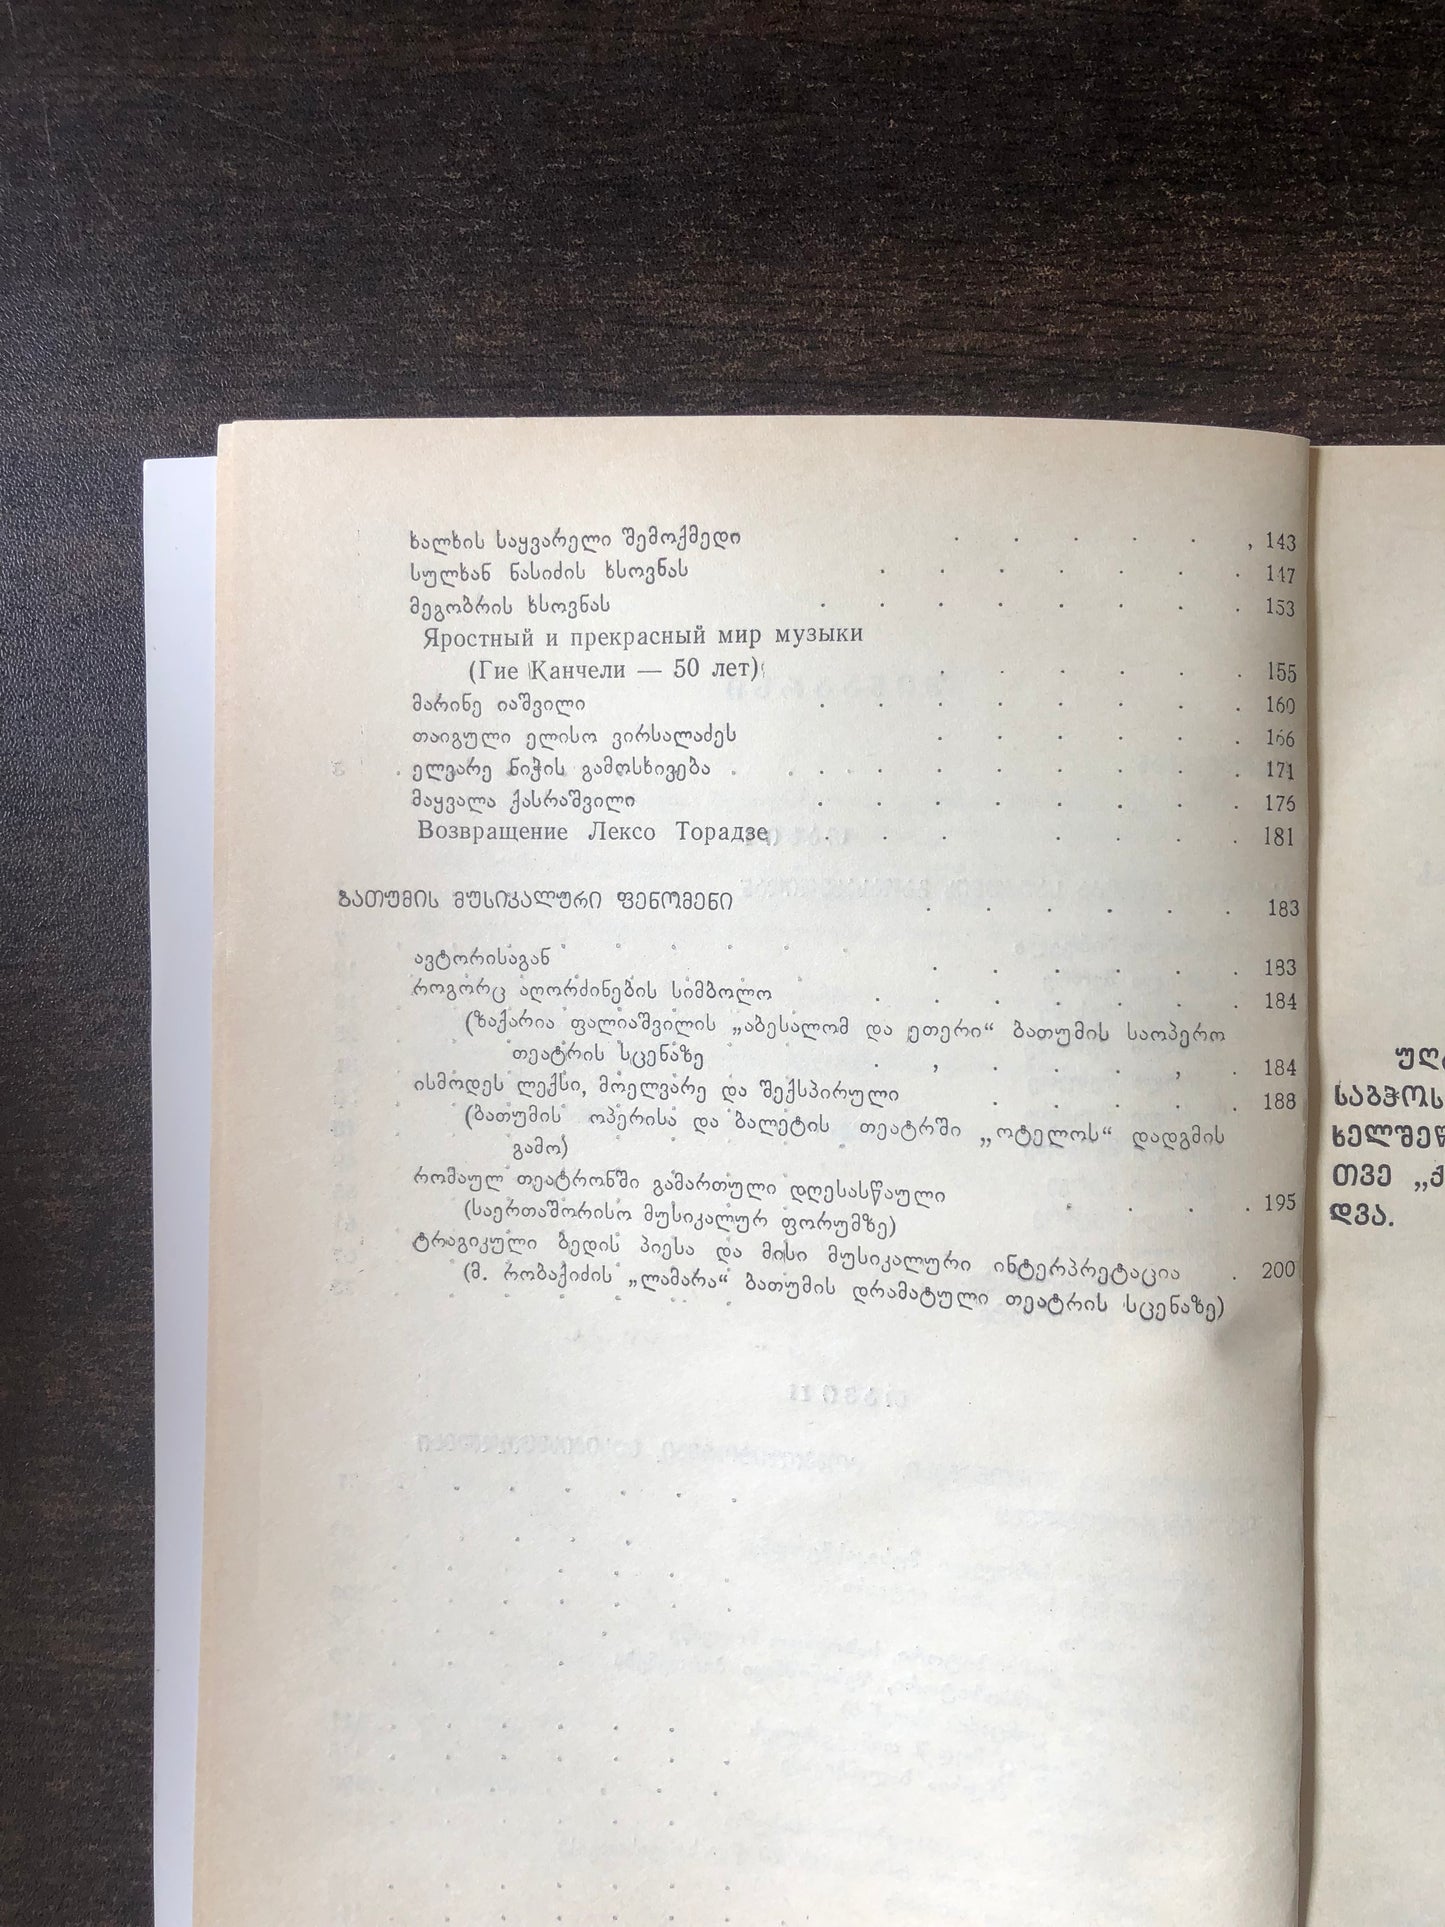 ხალხის საყვარელი შემოქმედი . . . . . , 143
სულხან ნასიძის ხსოვნას . . . . . . . 147
მეგობრის ხსოვნას . . . . . . . . 153
Яростный и прекрасный мир музыки
(Гие Канчели — 50 лет) . . . . . . 155
მარინე იაშვილი . . . . . . . . 160
თაიგული ელისო ვირსალაძეს . . . . . . 166
ელვარე ნიჭის გამოსხივება . . . . . . . . 171
მაყვალა ქასრაშვილი . . . . . . . . 176
Возвращение Лексо Торадзе . . . . . . 181
ბათუმის მუსიკალური ფენომენი . . . . . . 183
ავტორისაგან . . . . . . 183
როგორც აღორძინების სიმბოლო . . . . . . . 184
(ზაქარია ფალიაშვილის „აბესალომ და ეთერი“ ბათუმის საოპერო
თეატრის სცენაზე . , . . . , . 184
ისმოდეს ლექსი, მოელვარე და შექსპირული . . . . . 188
(ბათუმის ოპერისა და ბალეტის თეატრში „ოტელოს“ დადგმის
გამო)
რომაულ თეატრონში გამართული დღესასწაული . . . . 195
(საერთაშორისო მუსიკალურ ფორუმზე)
ტრაგიკული ბედის პიესა და მისი მუსიკალური ინტერპრეტაცია . 200
(მ. რობაქიძის „ლამარა“ ბათუმის დრამატული თეატრის სცენაზე)
საბჭოს
თვე „ქ
დვა.